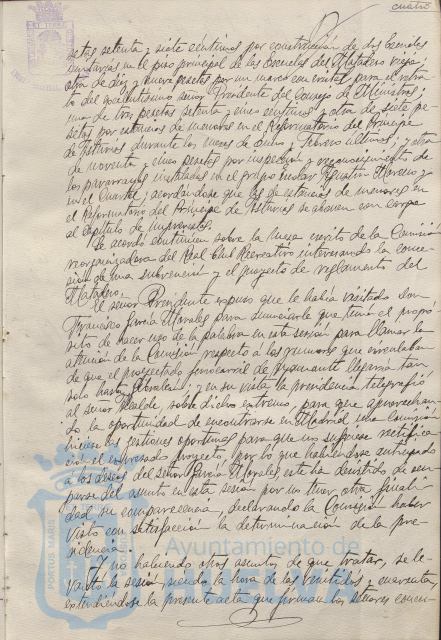 cuatro
setas setenta y siete centimos por construcción de dos Escuelas
Sanitarias en el piso principal de las Escuelas del Matadero viejo;
otra de diez y nueve pesetas por un marco con cristal para el retra
to del excelentísimo señor Presidente del Consejo de Ministros;
una de tres pesetas setenta y cinco centimos y otra de siete pe
setas por estancias de menores en el Reformatorio del Principe
de Asturias durante los meses de Enero y Febrero últimos; y otra
de noventa y cinco pesetas por inspección y reconocimiento de
los pararrayos instalados en el grupo escolar Agustin Moreno y
en el Cuartel; acordándose que las de estancias de menores en
el Reformatorio del Principe de Asturias se abonen con cargo
al capítulo de Imprevistos.
Se acordó continuen sobre la Mesa escrito de la Comisión
reorganizadora del Real Club Recreativo interesando la conce
sión de una subvención y el proyecto de reglamento del
Matadero.
El señor Presidente expuso que le había visitado don
Francisco García Morales para anunciarle que tenía el propó
sito de hacer uso de la palabra en esta sesión para llamar la
atención de la Comisión respecto a los rumores que circulaban
de que el proyectado ferrocarril de Ayamonte llegaría tan
solo hasta Gibraleón; y en su vista la presidencia telegrafió
al señor Alcalde, sobre dicho extremo, para que aprovechan
do la oportunidad de encontrarse en Madrid una Comisión
hiciese las gestiones oportunas para que no sufriese rectifica
ción el expresado proyecto, por lo que habiéndose anticipado
a los deseos del señor García Morales, este ha desistido de ocu
parse del asunto en esta sesión por no tener otra finali
dad su comparecencia, declarando la Comisión haber
visto con satisfacción la determinación de la pre
sidencia.
Y no habiendo otros asuntos de que tratar, se le-
vantó la sesión, siendo la hora de las veintidós y cuarenta
extendiéndose la presente acta que firman los señores concu-
PORTUS MARIS
Ayuntamiento de